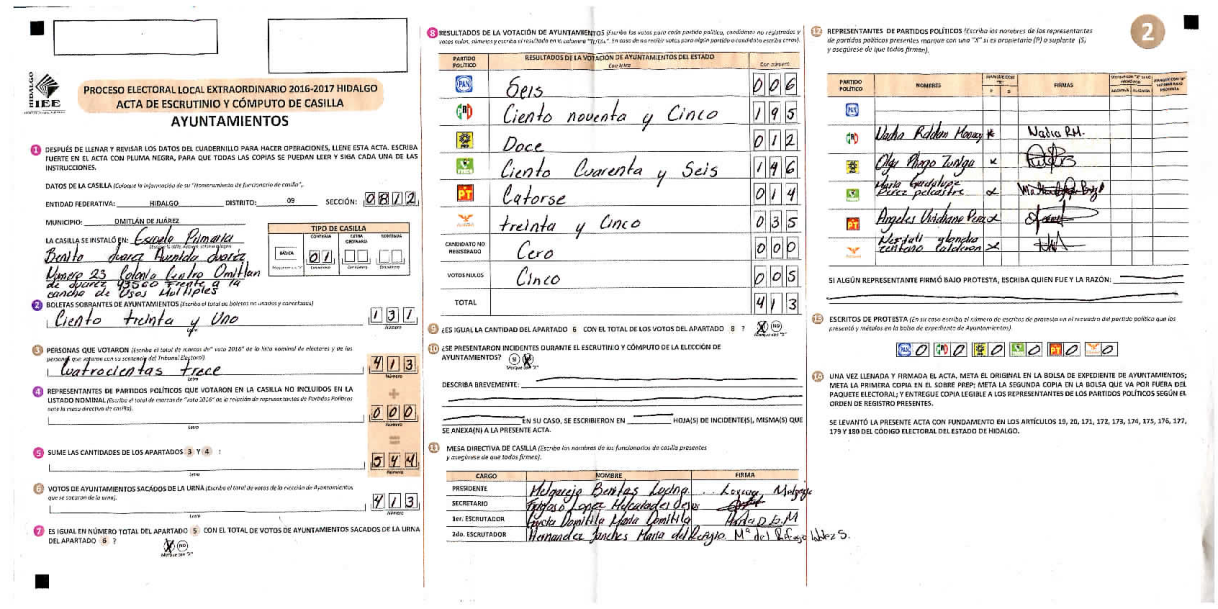 HIDALGO
IEE
PROCESO ELECTORAL LOCAL EXTRAORDINARIO 2016-2017 HIDALGO
ACTA DE ESCRUTINIO Y CÓMPUTO DE CASILLA
AYUNTAMIENTOS
1 DESPUÉS DE LLENAR Y REVISAR LOS DATOS DEL CUADERNILLO PARA HACER OPERACIONES, LLENE ESTA ACTA. ESCRIBA
FUERTE EN EL ACTA CON PLUMA NEGRA, PARA QUE TODAS LAS COPIAS SE PUEDAN LEER Y SIGA CADA UNA DE LAS
INSTRUCCIONES.
DATOS DE LA CASILLA (Coloque la información de su "Nombramiento de funcionario de casilla",
ENTIDAD FEDERATIVA: HIDALGO DISTRITO: 09 SECCIÓN: 0812
MUNICIPIO: OMITLÁN DE JUÁREZ
TIPO DE CASILLA
BÁSICA 01
LA CASILLA SE INSTALÓ EN: Escuela Primaria
Benito Juarez Avenida Juárez
Número 23 Colonia Centro Omitlan
de Juarez 43560 Frente a la
cancha de Usos Multiples
2 BOLETAS SOBRANTES DE AYUNTAMIENTOS (Escriba el total de boletas no usadas y canceladas)
Ciento treinta y Uno 131
Letra Número
3 PERSONAS QUE VOTARON (Escriba el total de marcas de "votó 2016" de la lista nominal de electores y de las
personas que votaron con su sentencia del Tribunal Electoral)
Cuatrocientas trece 413
Letra Número
4 REPRESENTANTES DE PARTIDOS POLÍTICOS QUE VOTARON EN LA CASILLA NO INCLUIDOS EN LA
LISTADO NOMINAL (Escriba el total de marcas de "votó 2016" de la relación de representantes de Partidos Políticos
ante la mesa directiva de casilla).
+
000
Letra Número
=
5 SUME LAS CANTIDADES DE LOS APARTADOS 3 Y 4 :
544
Letra Número
6 VOTOS DE AYUNTAMIENTOS SACADOS DE LA URNA (Escriba el total de votos de la elección de Ayuntamientos
que se sacaron de la urna).
413
Letra Número
7 ES IGUAL EN NÚMERO TOTAL DEL APARTADO 5 CON EL TOTAL DE VOTOS DE AYUNTAMIENTOS SACADOS DE LA URNA
DEL APARTADO 6 ?
X NO
Marque con "X"
8 RESULTADOS DE LA VOTACIÓN DE AYUNTAMIENTOS (Escriba los votos para cada partido político, candidatos no registrados y
votos nulos, súmelos y escriba el resultado en la columna "TOTAL". En caso de no recibir votos para algún partido o candidato escriba ceros).
PARTIDO POLÍTICO RESULTADOS DE LA VOTACIÓN DE AYUNTAMIENTOS DEL ESTADO
Con letra Con número
PAN Seis 006
Ciento noventa y Cinco 195
PRD Doce 012
VERDE Ciento Cuarenta y Seis 146
PT Catorse 014
treinta y Cinco 035
CANDIDATO NO REGISTRADO Cero 000
VOTOS NULOS Cinco 005
TOTAL 413
9 ¿ES IGUAL LA CANTIDAD DEL APARTADO 6 CON EL TOTAL DE LOS VOTOS DEL APARTADO 8 ? X NO
Marque con "X"
10 ¿SE PRESENTARON INCIDENTES DURANTE EL ESCRUTINIO Y CÓMPUTO DE LA ELECCIÓN DE
AYUNTAMIENTOS? SI X
Marque con "X"
DESCRIBA BREVEMENTE:
EN SU CASO, SE ESCRIBIERON EN HOJA(S) DE INCIDENTE(S), MISMA(S) QUE
SE ANEXA(N) A LA PRESENTE ACTA.
11 MESA DIRECTIVA DE CASILLA (Escriba los nombres de los funcionarios de casilla presentes
y asegúrese de que todos firmen).
CARGO NOMBRE FIRMA
PRESIDENTE Melgarejo Benitas Lucina
SECRETARIO Lopez
1er. ESCRUTADOR Domitila Maria Domitila Maria D. G. M
2do. ESCRUTADOR Hernandez Sanches Maria del Refugio Mª del Refugio Hdez S.
12 REPRESENTANTES DE PARTIDOS POLÍTICOS (Escriba los nombres de los representantes
de partidos políticos presentes marque con una "X" si es propietario (P) o suplente (S)
y asegúrese de que todos firmen).
2
PARTIDO POLÍTICO NOMBRES MARQUE CON "X" P S FIRMAS
PAN
Nadia Roldan X Nadia R.H.
PRD Olga Zuñiga X
VERDE Maria Guadalupe Perez X
PT Angeles Viridiana Perez X
Yolanda Calderon X
SI ALGÚN REPRESENTANTE FIRMÓ BAJO PROTESTA, ESCRIBA QUIEN FUE Y LA RAZÓN:
13 ESCRITOS DE PROTESTA (En su caso escriba el número de escritos de protesta en el recuadro del partido político que los
presentó y métalos en la bolsa de expediente de Ayuntamientos).
PAN 0 0 0 0 PT 0 0
14 UNA VEZ LLENADA Y FIRMADA EL ACTA, META EL ORIGINAL EN LA BOLSA DE EXPEDIENTE DE AYUNTAMIENTOS;
META LA PRIMERA COPIA EN EL SOBRE PREP; META LA SEGUNDA COPIA EN LA BOLSA QUE VA POR FUERA DEL
PAQUETE ELECTORAL; Y ENTREGUE COPIA LEGIBLE A LOS REPRESENTANTES DE LOS PARTIDOS POLÍTICOS SEGÚN EL
ORDEN DE REGISTRO PRESENTES.
SE LEVANTÓ LA PRESENTE ACTA CON FUNDAMENTO EN LOS ARTÍCULOS 19, 20, 171, 172, 173, 174, 175, 176, 177,
179 Y 180 DEL CÓDIGO ELECTORAL DEL ESTADO DE HIDALGO.